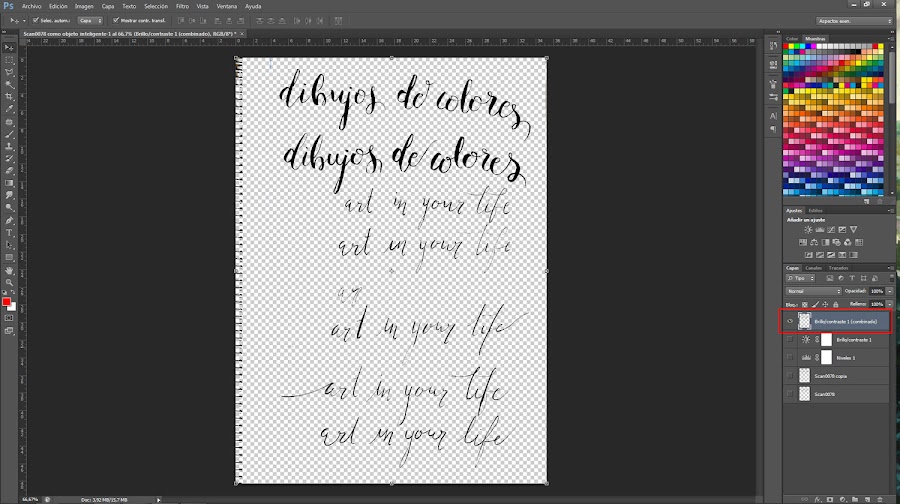 Ps Archivo Edición Imagen Capa Texto Selección Filtro Vista Ventana Ayuda
Selec. autom.: Capa Mostrar contr. transf. Aspectos esen.
Scan0078 como objeto inteligente-1 al 66,7% (Brillo/contraste 1 (combinado), RGB/8*) *
Color Muestras
dibujos de colores
dibujos de colores
art in your life
art in your life
ar
art in your life
art in your life
art in your life
Ajustes Estilos
Añadir un ajuste
Capas Canales Trazados
Tipo
Normal Opacidad: 100%
Bloq.: Relleno: 100%
Brillo/contraste 1 (combinado)
Brillo/contraste 1
Niveles 1
Scan0078 copia
Scan0078
66,67% Doc: 3,92 MB/15,7 MB